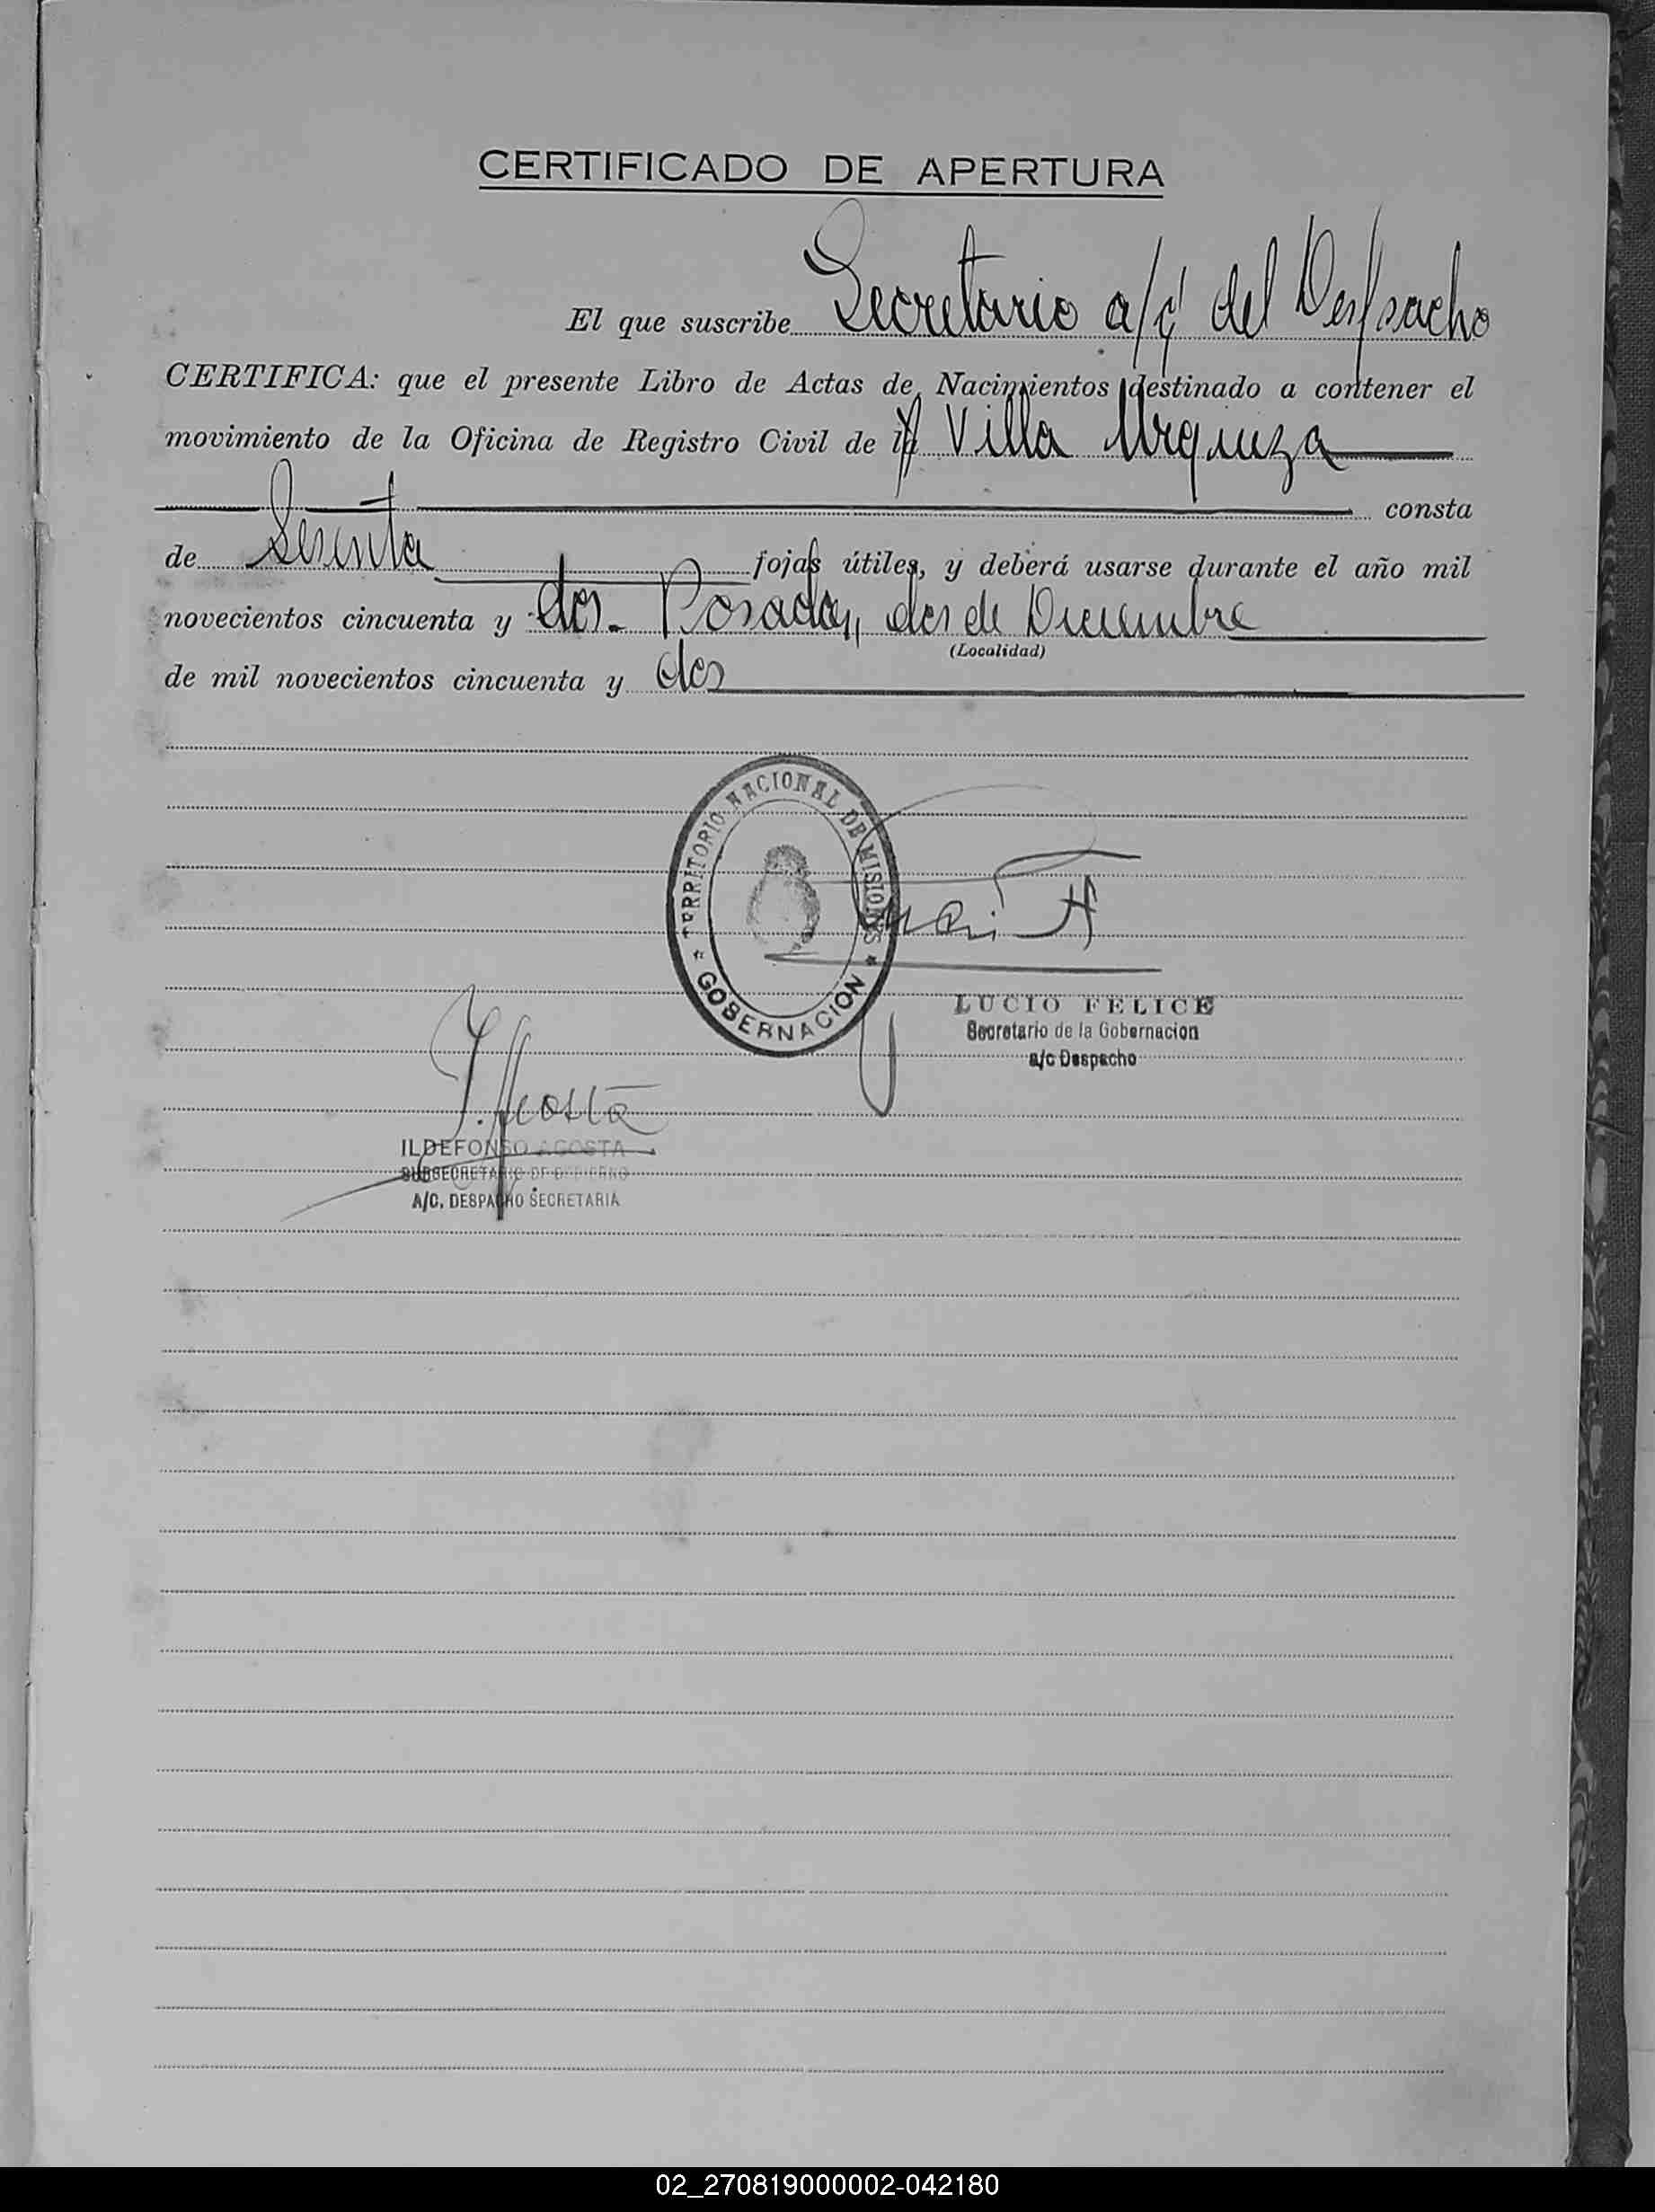 CERTIFICADO DE APERTURA
El que suscribe Secretario a/c del Despacho
CERTIFICA: que el presente Libro de Actas de Nacimientos destinado a contener el
movimiento de la Oficina de Registro Civil de Villa Urquiza
consta
de Sesenta fojas útiles, y deberá usarse durante el año mil
novecientos cincuenta y dos.- Posadas, dos de Diciembre
(Localidad)
de mil novecientos cincuenta y dos
TERRITORIO NACIONAL DE MISIONES
GOBERNACION
LUCIO FELICE
Secretario de la Gobernacion
a/c Despacho
I. Acosta
ILDEFONSO ACOSTA
SUBSECRETARIO DE GOBIERNO
A/C. DESPACHO SECRETARIA
02_270819000002-042180